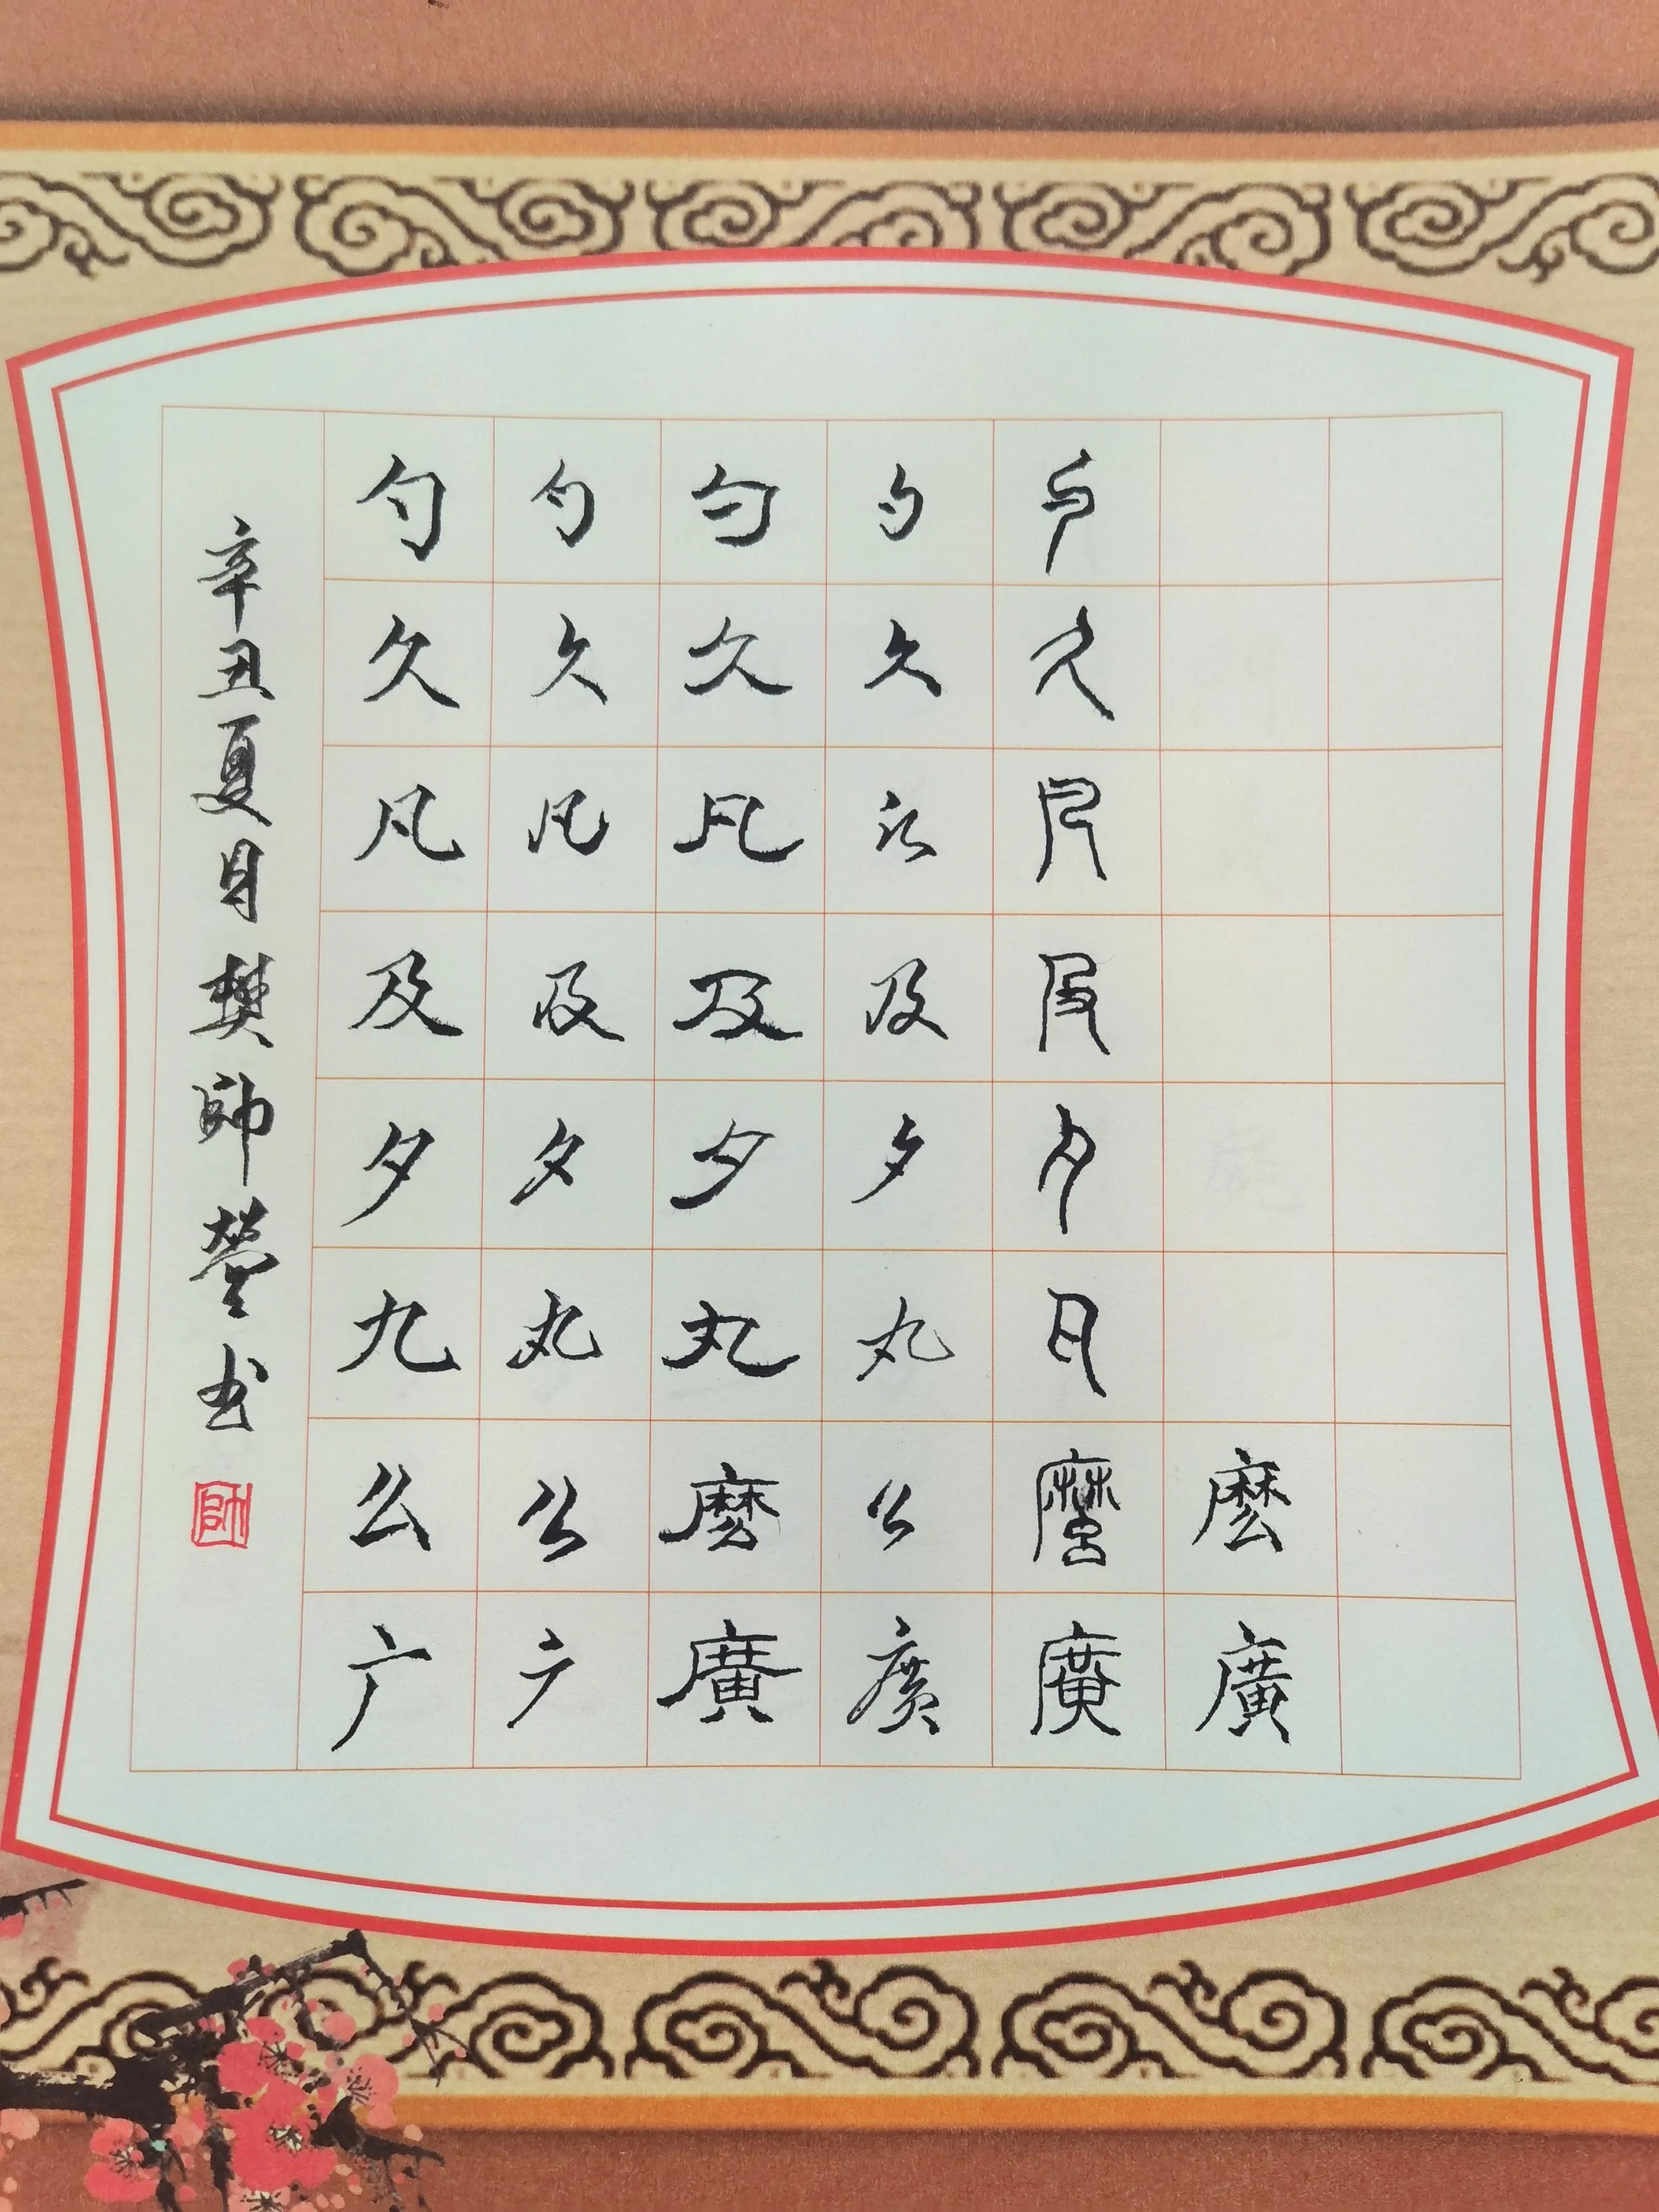 勺 勺 勺 勺 勺
久 久 久 久 久
凡 凡 凡 凡 凡
及 及 及 及 及
夕 夕 夕 夕 夕
九 丸 丸 丸 丸
么 么 麽 么 麽 麽
广 广 廣 廣 廣 廣
辛丑夏月樊帥瑩书
帥